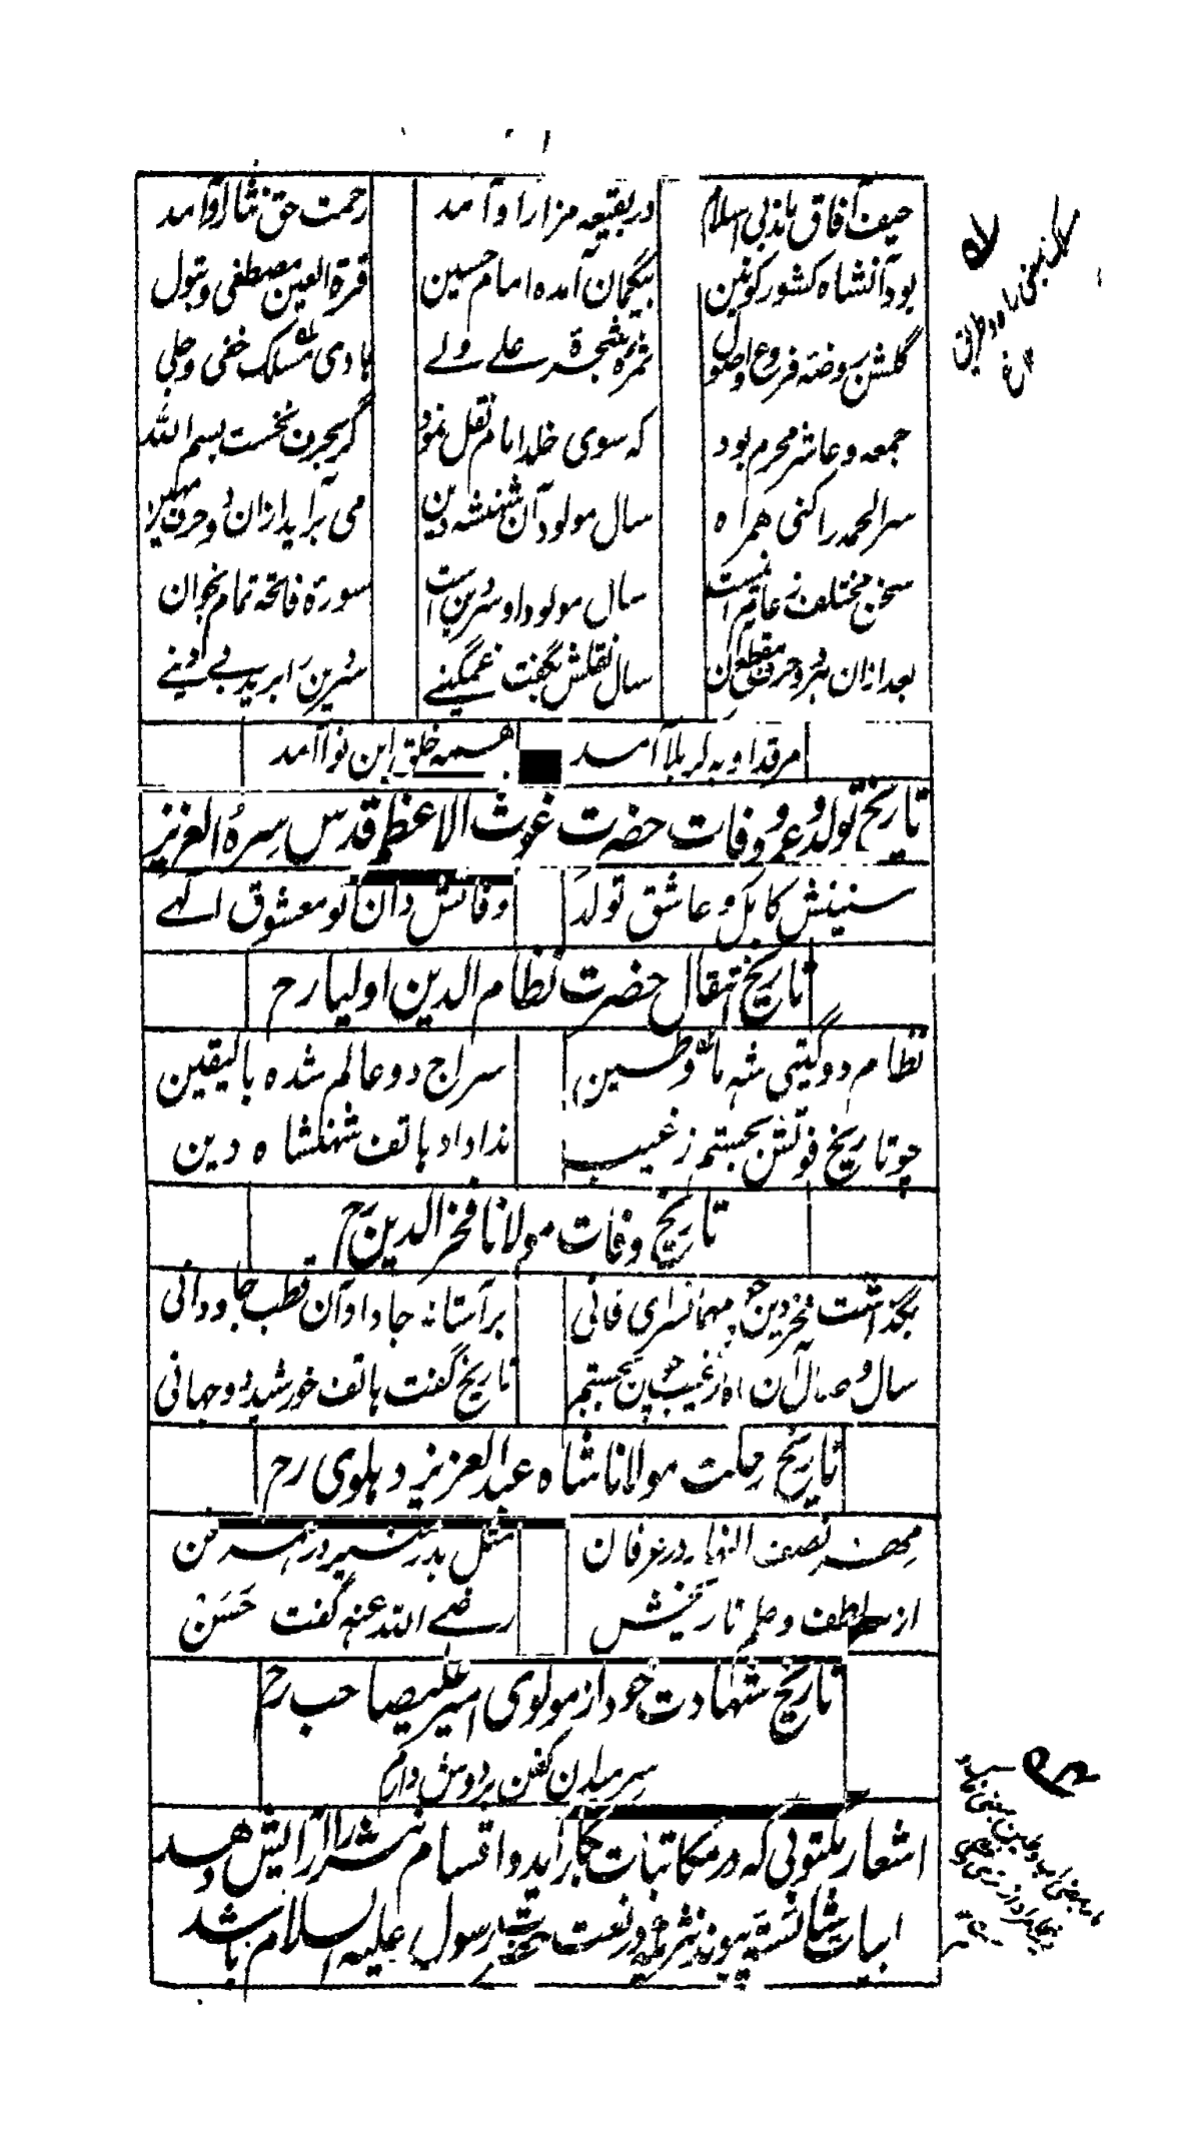 حیف آفاق ماند بی اسلام
در بقیعه مزار او آمد
رحمت حق نثار او آمد
بود آنشاه کشور کونین
بیگمان آمده امام حسین
قرة العین مصطفی و بتول
گلشن روضه فروع و اصول
ثمره شجرة علی ولے
هادی مسلک خفی و جلی
جمعه و عاشر محرم بود
که سوی خلد امام نقل نمود
گر بحرف نخست بسم الله
سر الحمد را کنی همراه
سال مولود آن شهنشه دین
می برآید ازان دو حرف مهین
سخن مختلف ز عالم است
سال مولود او سر دین است
سورة فاتحه تمام بخوان
بعد ازان هر دو حرف مقطع کن
سال نقلش بگفت غمگینے
سر دین را برید بے دینے
مرقد او به کربلا آمد
همه خلق این نوا آمد
تاریخ تولد و عمر و وفات حضرت غوث الاعظم قدس سره العزیز
سنینش کامل و عاشق تولد
وفاتش دان تو معشوق الٰہے
تاریخ انتقال حضرت نظام الدین اولیا رح
نظام دو گیتی شه ماء وطین
سراج دو عالم شده بالیقین
چو تاریخ فوتش بجستم ز غیب
ندا داد هاتف شهنشاه دین
تاریخ وفات مولانا فخر الدین رح
بگذاشت فخر دین چو مهمانسرای فانی
بر آستانه جا داد آن قطب جاودانی
سال وصال آن ماه از غیب چون بجستم
تاریخ گفت هاتف خورشید دو جهانی
تاریخ رحلت مولانا شاه عبدالعزیز دہلوی رح
مهر نصف النهار در عرفان
مثل بدر منیر در همه فن
از لطف و حلم تاریخش
رضے الله عنه گفت حسن
تاریخ شهادت خود از مولوی امیر علیصاحب رح
سر میدان کفن بر دوش دارم
اشعار مکتوبی که در مکاتبات بکار آید و اقسام نثر را آرایش دهد
ابیات شائسته پیوند نثر در نعت رسول علیه السلام باشد